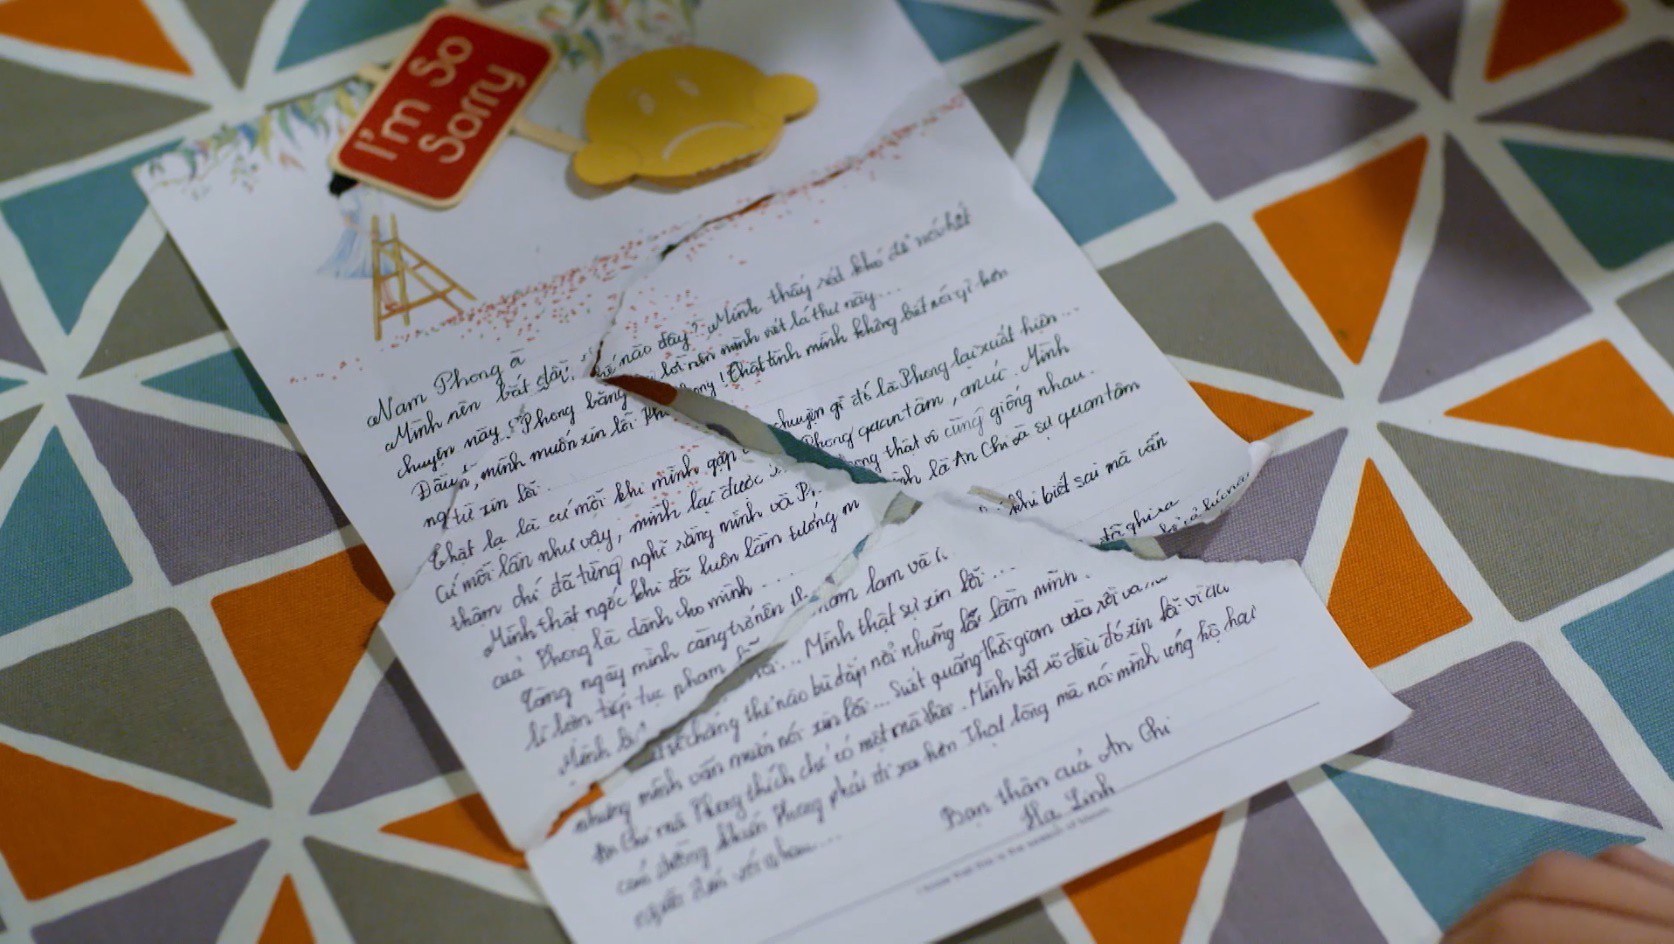 I'm So
Sorry
Nam Phong à
Mình nên bắt đầu thế nào đây? Mình thấy rất khó để nói hết
chuyện này.. Phong bằng lời nên mình viết lá thư này...
Đầu, mình muốn xin lỗi Phong! Thật tình mình không biết nói gì hơn
ng từ xin lỗi.
Thật lạ là cứ mỗi khi mình gặp chuyện gì đó là Phong lại xuất hiện...
Cứ mỗi lần như vậy, mình lại được Phong quan tâm, an ủi. Mình
thậm chí đã từng nghĩ rằng mình và thật vô cùng giống nhau.
Mình thật ngốc khi đã luôn lầm tưởng là An Chi và sự quan tâm
của Phong là dành cho mình....
Càng ngày mình càng trở nên tham lam và khi biết sai mà vẫn
lì lợm tiếp tục phạm Mình thật sự xin lỗi... đã ghi ra
Mình chẳng thể nào bù đắp nổi những lỗi lầm mình
nhưng mình vẫn muốn nói xin lỗi... Suốt quãng thời gian vừa rồi
An Chi mà Phong thích chỉ có một mà thôi. Mình biết số điều đó xin lỗi vì
con đường khiến Phong phải đi xa hơn Thật lòng mà nói mình ủng hộ hai
người đến với nhau...
Bạn thân của An Chi
Hạ Linh